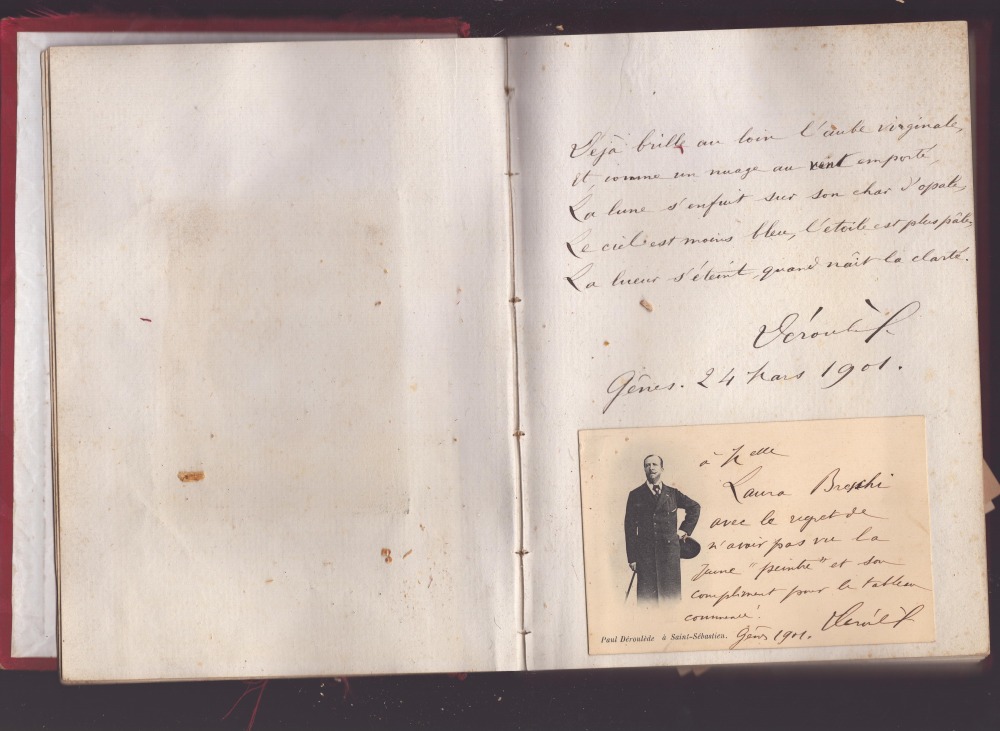 Déjà brille au loin l'aube virginale,
Et comme un nuage au vent emporté,
La lune s'enfuit sur son char d'opale,
Le ciel est moins bleu, l'étoile est plus pâle,
La lueur s'éteint, quand naît la clarté.
Déroulède
Gênes. 24 Mars 1901.
à Melle
Laura Breschi
avec le regret de
n'avoir pas vu la
jeune "peintre" et son
compliment pour le tableau
commencé!
Gênes 1901. Déroulède
Paul Déroulède à Saint-Sébastien.